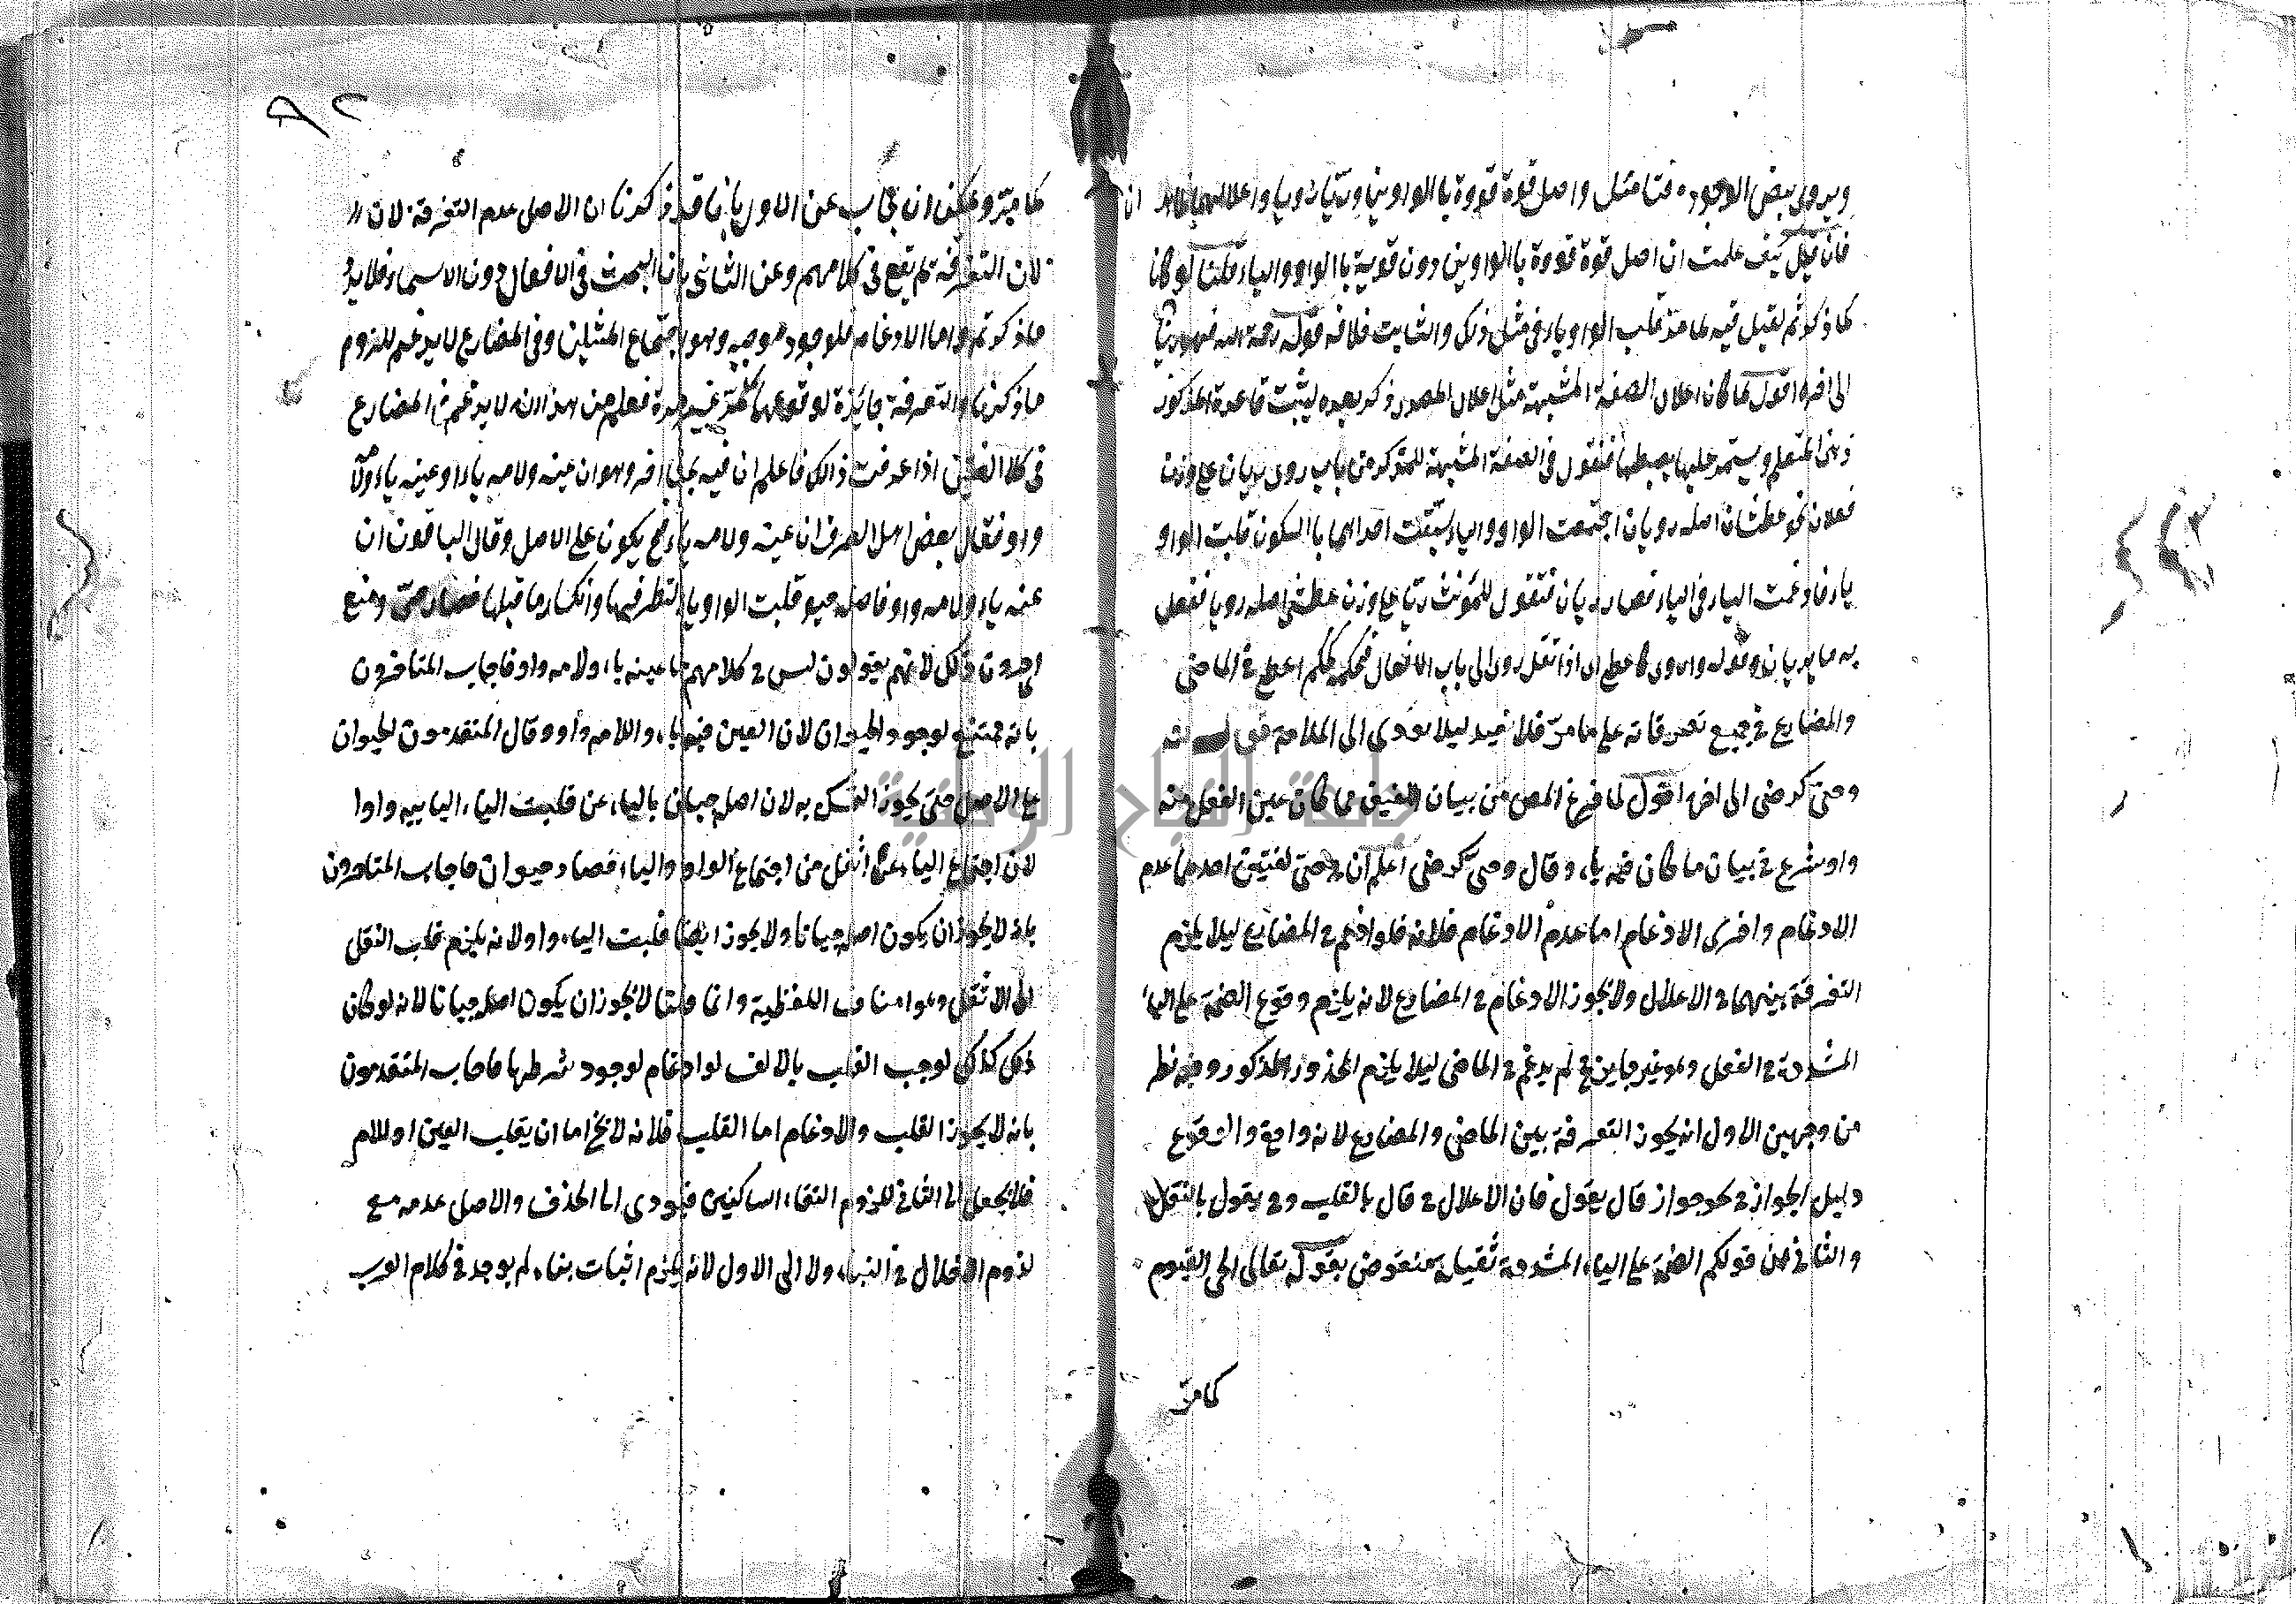 ويروى بعض الوجوه فتأمل واصل قوة قووة بالواوين وريّا رويا واعلالهما ظاهر
فان قيل كيف علمت ان اصل قوة قووة بالواوين دون قوية بالواو والياء قلنا لو كان
كما ذكرتم لقيل فيه لما مر قلب الواو ياء في مثل ذلك والثابت خلافه قوله رحمه الله فهو ريان
الى اخره اقول لما كان اعلال الصفة المشبهة مثل اعلال المصدر ذكر بعده ليثبت قاعدة المذكور
ذهن المتعلم ويستمر عليها بضبطها فنقول في الصفة المشبهة للمذكر من باب روى ريان على وزن
فعلان نحو عطشان اصله رويان اجتمعت الواو والياء وسبقت احداهما بالسكون قلبت الواو
ياء فادغمت الياء في الياء فصار ريان فتقول للمؤنث ريّا على وزن عطشى اصله رويا ففعل
به ما بريان وقوله واروى كاعطى اى اذا نقل روى الى باب الافعال فحكمه كحكم اعطى في الماضى
والمضارع في جميع تصرفاته على ما مرّ فلا نعيد ليلا يؤدى الى الملامة قوله
وحيى كرضى الى اخره اقول لما فرغ المص من بيان اللفيف مما كان عين الفعل منه
واو شرع في بيان ما كان فيه ياء وقال وحيى كرضى اعلم ان في حيى لغتين احدهما عدم
الادغام واخرى الادغام اما عدم الادغام فلانه فلو ادغم في المضارع ليلا يلزم
التفرقة بينهما في الاعلال ولا يجوز الادغام في المضارع لانه يلزم وقوع الضمة على الياء
المشددة في الفعل وهو غير جايز فلم يدغم في الماضى ليلا يلزم المحذور المذكور وفيه نظر
من وجهين الاول انه يجوز التفرقة بين الماضى والمضارع لانه واقع والوقوع
دليل الجواز في نحو جواز قال يقول فان الاعلال في قال بالقلب وفي يقول بالنقل
والثانى ان قولكم الضمة على الياء المشددة ثقيلة منقوض بقوله تعالى الحى القيوم
كما مرّ
٩٢
كما مرّ ويمكن ان يجاب عن الاول بانا قد ذكرنا ان الاصل عدم التفرقة لان
لان التفرقة لم يقع في كلامهم وعن الثانى بان البحث في الافعال دون الاسماء فلا يرد
ما ذكرتم واما الادغام فلوجود موجبه وهو اجتماع المثلين وفي المضارع لا يدغم للزوم
ما ذكرنا والتفرقة جائزة لوقوعها كثير فعلم من هذا انه لا يدغم في المضارع
في كلا اللغتين اذا عرفت ذالك فاعلم ان فيه بحثا اخر وهو ان عينه ولامه ياء او عينه ياء ولامه
واو فقال بعض اهل الصرف ان عينه ولامه ياء فح يكون على الاصل وقال الباقون ان
عينه ياء ولامه واو فاصله حيو قلبت الواو ياء لتطرفها وانكسار ما قبلها فصار حيى ومنع
الاخرون ذلك لانهم يقولون ليس في كلامهم ما عينه ياء ولامه واو فاجاب المتاخرون
بانه ممتنع لوجود الحيوان لان العين فيه ياء واللام واو وقال المتقدمون الحيوان
على الاصل حتى يجوز التمسك به لان اصل حييان بالياءين قلبت الياء الثانيه واوا
لان اجتماع الياءين اثقل من اجتماع الواو والياء فصار حيوان فاجاب المتاخرون
بانه لا يجوز ان يكون اصله حييانا ولا يجوز ايضا قلبت الياء واو لانه يلزم قلب الثقل
الى الاثقل وهو مناف اللفظية وانما قلنا لا يجوز ان يكون اصله حييانا لانه لو كان
ذلك كذلك لوجب القلب بالالف او ادغام لوجود شرطها فاجاب المتقدمون
بانه لا يجوز القلب والادغام اما القلب فلانه لا يخ اما ان يقلب العين او اللام
فلا يجعل الى الثانى للزوم التقاء الساكنين فيؤدى الى الحذف والاصل عدمه مع
لزوم الاختلال في البناء ولا الى الاول لانه يلزم اثبات بناء لم يوجد في كلام العرب
جامعة النجاح الوطنية